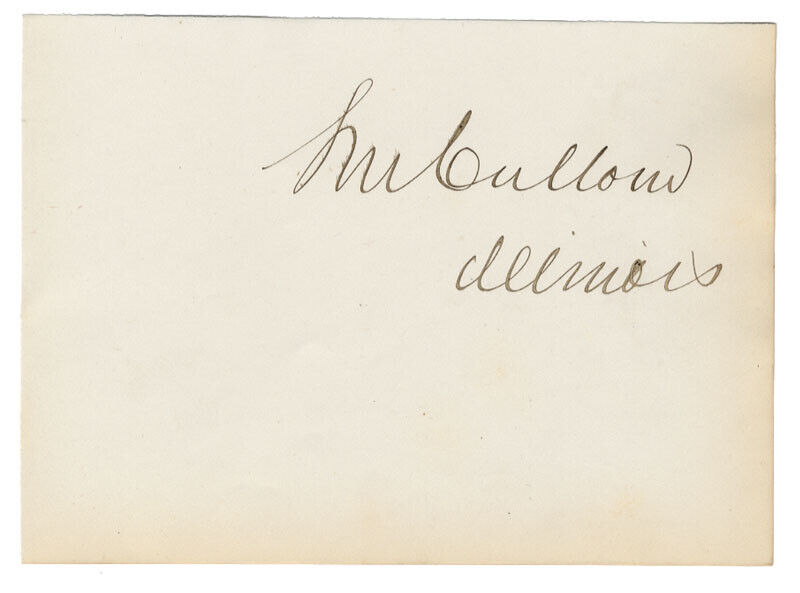 S M Cullom
Illinois